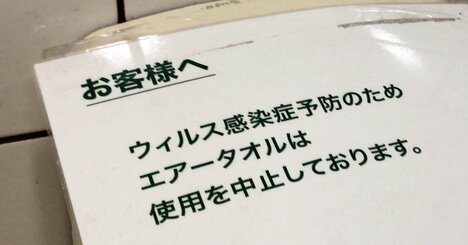 お客様へ
ウィルス感染症予防のため
エアータオルは
使用を中止しております。